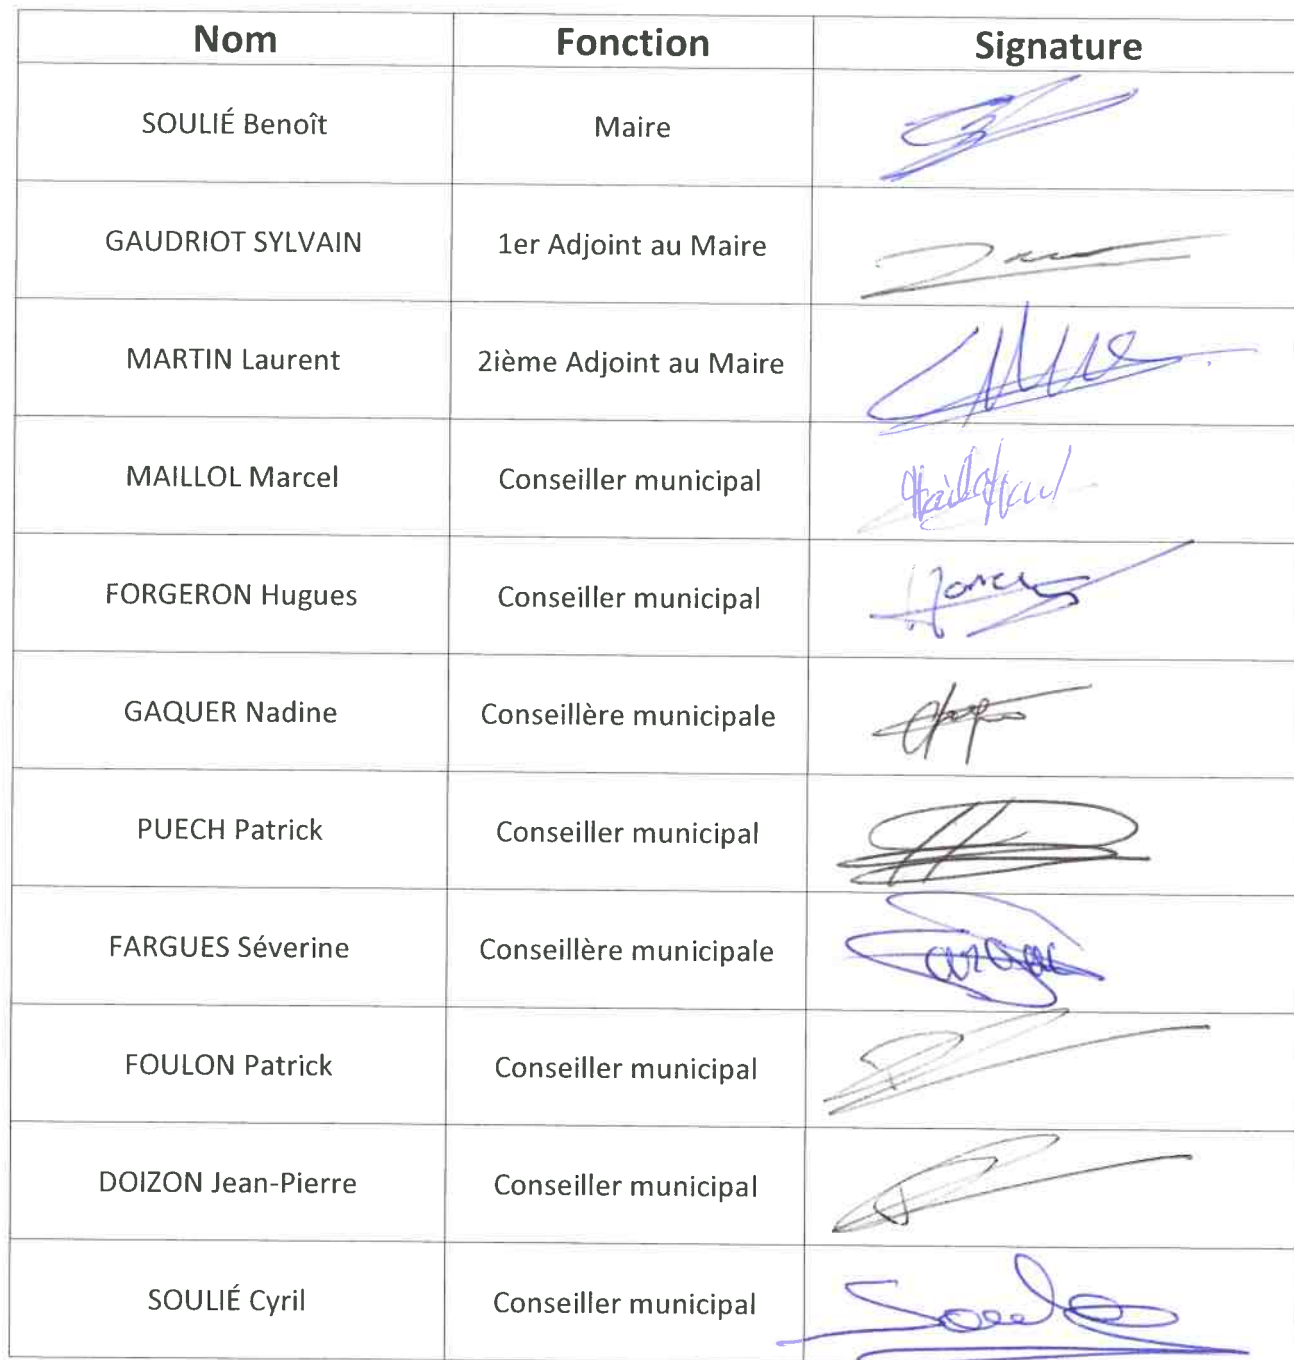 Nom Fonction Signature
SOULIÉ Benoît Maire
GAUDRIOT SYLVAIN 1er Adjoint au Maire
MARTIN Laurent 2ième Adjoint au Maire
MAILLOL Marcel Conseiller municipal
FORGERON Hugues Conseiller municipal
GAQUER Nadine Conseillère municipale
PUECH Patrick Conseiller municipal
FARGUES Séverine Conseillère municipale
FOULON Patrick Conseiller municipal
DOIZON Jean-Pierre Conseiller municipal
SOULIÉ Cyril Conseiller municipal